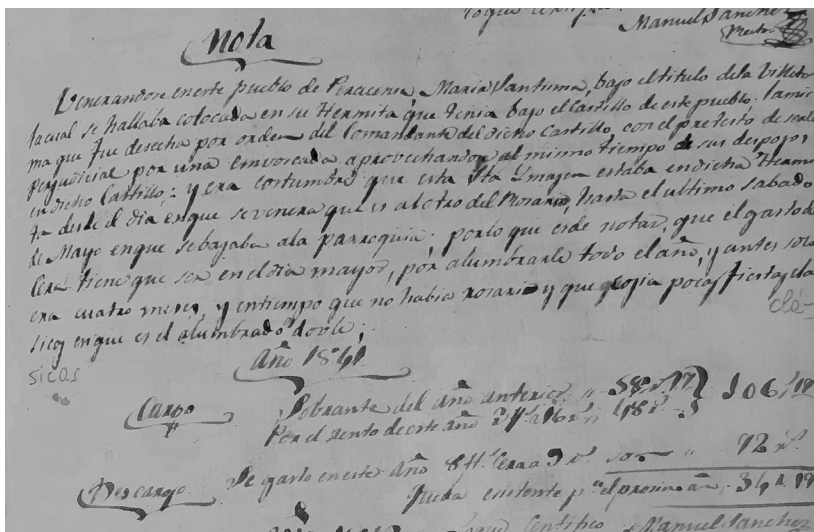 Manuel Sanchez
Rector
Nota
Venerandose en este pueblo de Peracense Maria Santisima, bajo el titulo de la Villeta
la cual se hallaba colocada en su Hermita que tenia bajo el Castillo de este pueblo. la mis
ma que fue desecha por orden del Comandante del dicho Castillo, con el pretesto de serle
perjudicial por una emboscada aprovechandose al mismo tiempo de sus despojos
en dicho Castillo; y era costumbre que esta Sta Ymagen estaba en dicha Hermi
ta desde el dia en que se venera que es al otro del Rosario, hasta el ultimo sabado
de Mayo en que se bajaba a la parroquia; por lo que es de notar, que el gasto de
Cera tiene que ser en el dia mayor, por alumbrarle todo el año, y antes solo
era cuatro meses, y en tiempo que no habia rosario y que cojia pocas fiestas cla
sicas en que es el alumbrado doble;
clá-
sicas
Año 1841
Cargo Sobrante del año anterior 58 r 17 106 r 17
Por el rento de este año 48 r
Descargo Se gasto en este año 8 Cera a 9 r son 72 r
Queda existente pa el proximo año 34 r 17
Manuel Sanchez